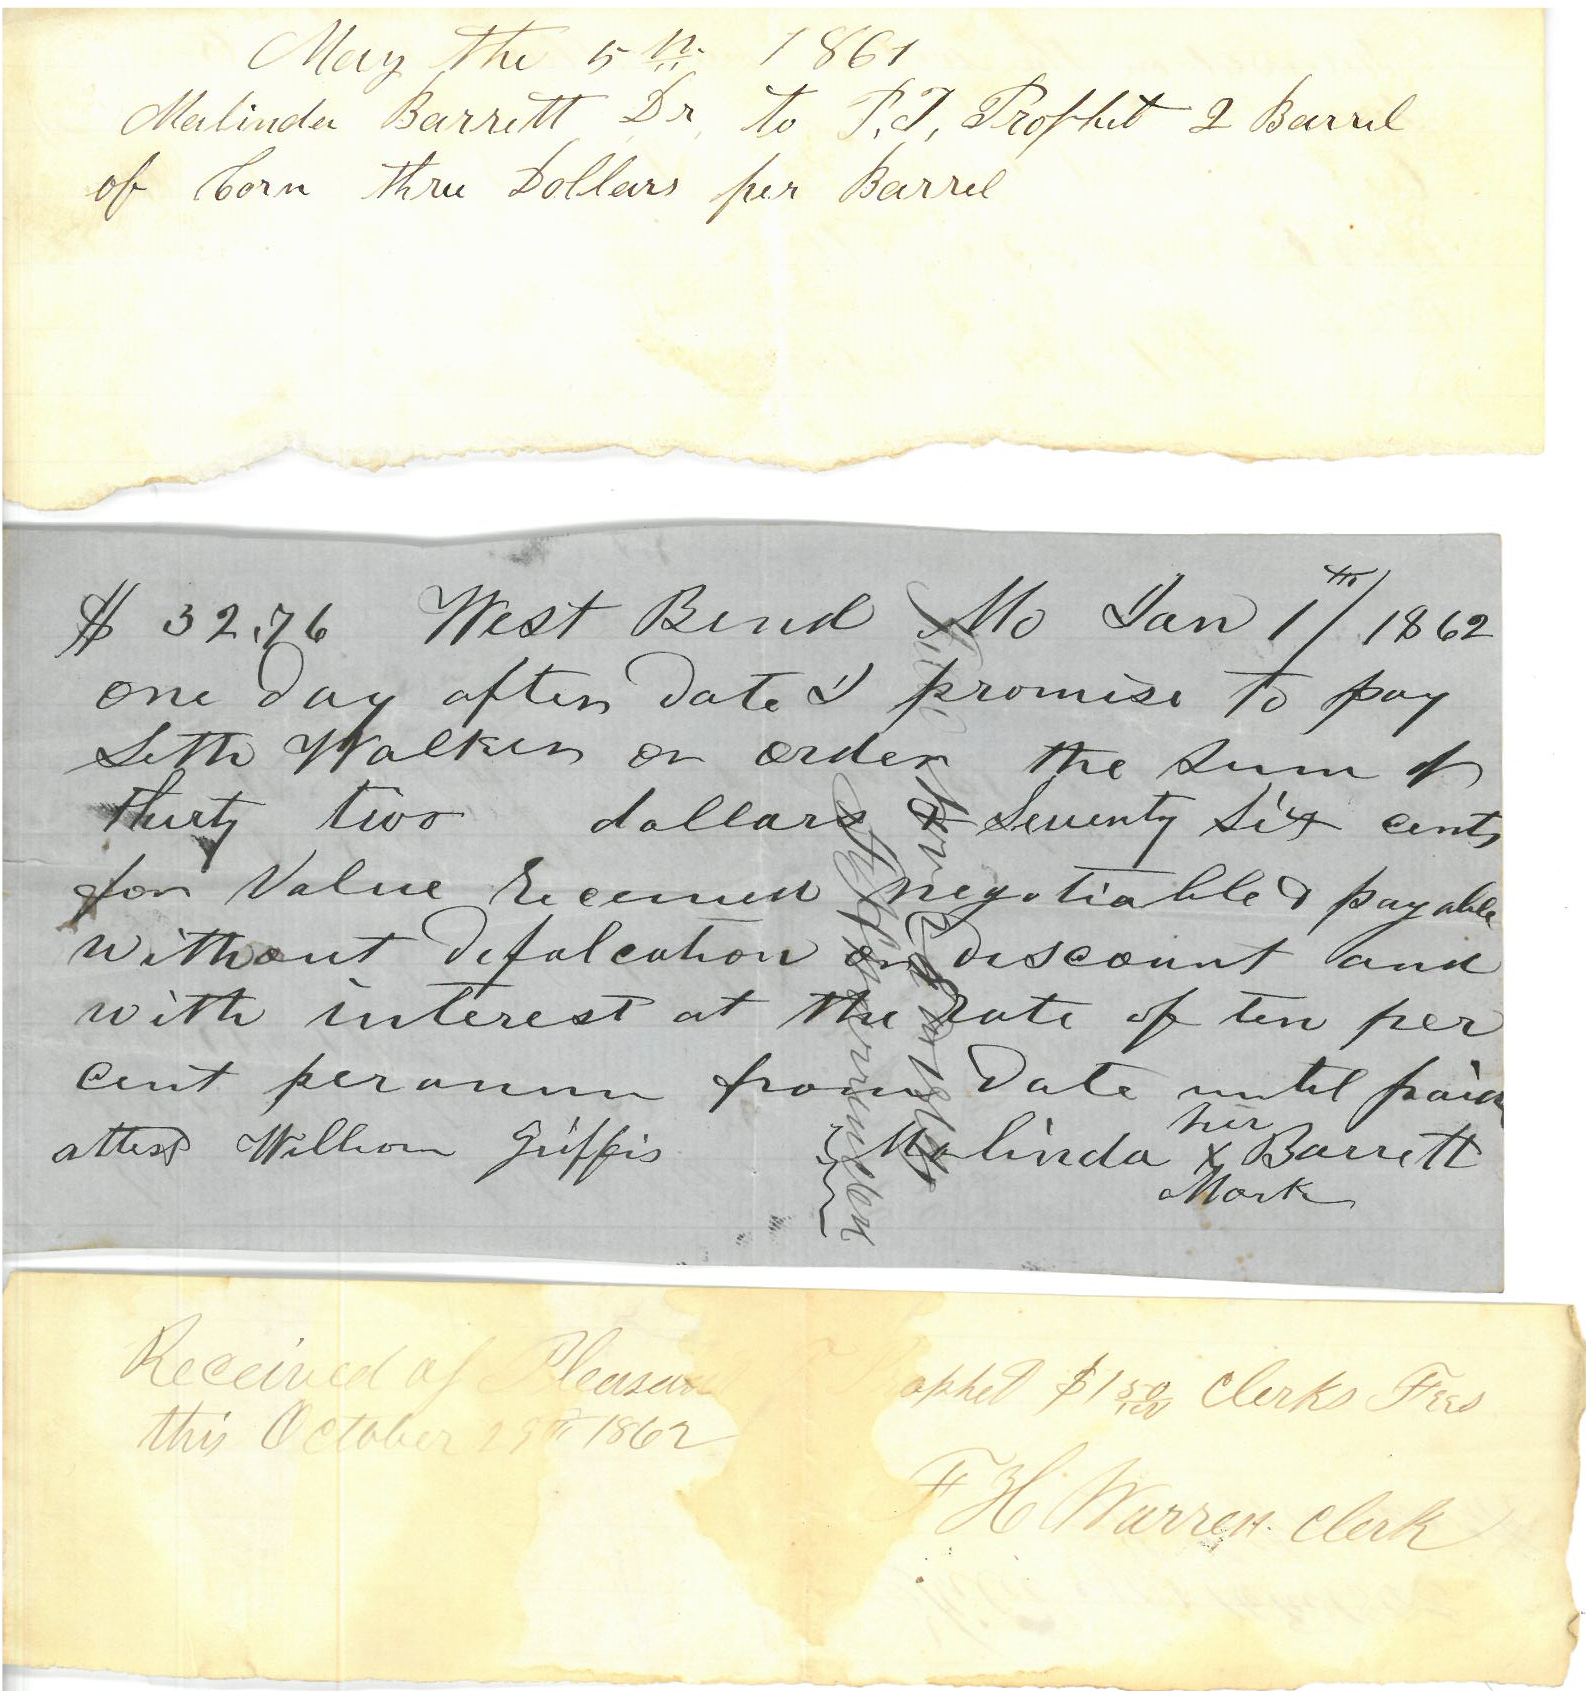 May the 5th 1861
Malinda Barrett Dr to P.T. Prophet 2 Barrel
of Corn thre Dollars per Barrel
$ 32.76 West Bend Mo Jan 1th/1862
one day after date I promise to pay
Seth Walker or order the sum of
thirty two dollars & Seventy Six cents
for Value received negotiable & payable
without defalcation or discount and
with interest at the rate of ten per
cent per annum from date until paid
attest William Griffis Malinda her x Mark Barrett
Received of Pleasan ophet $1 50/100 Clerks Fees
this October 29th 1862
F H Warren Clerk